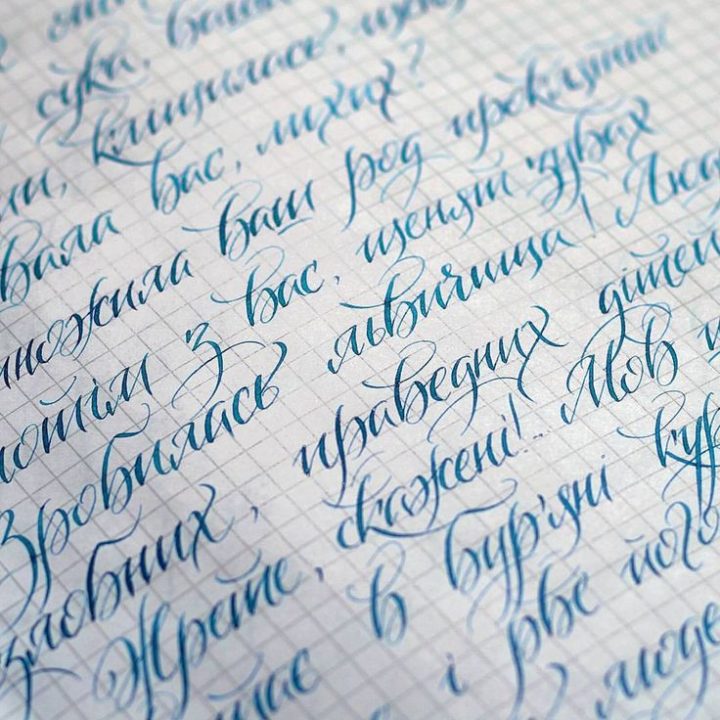 сука, ваша
клищилась, щен
вала вас, лихих?
множила ваш род проклятий
потім з вас, щенят зубах
Зробилась львичища! Люд
злобних, праведних дітей
Жрете, скажені!.. Мов
в бур'яні кур
і рве його
моде